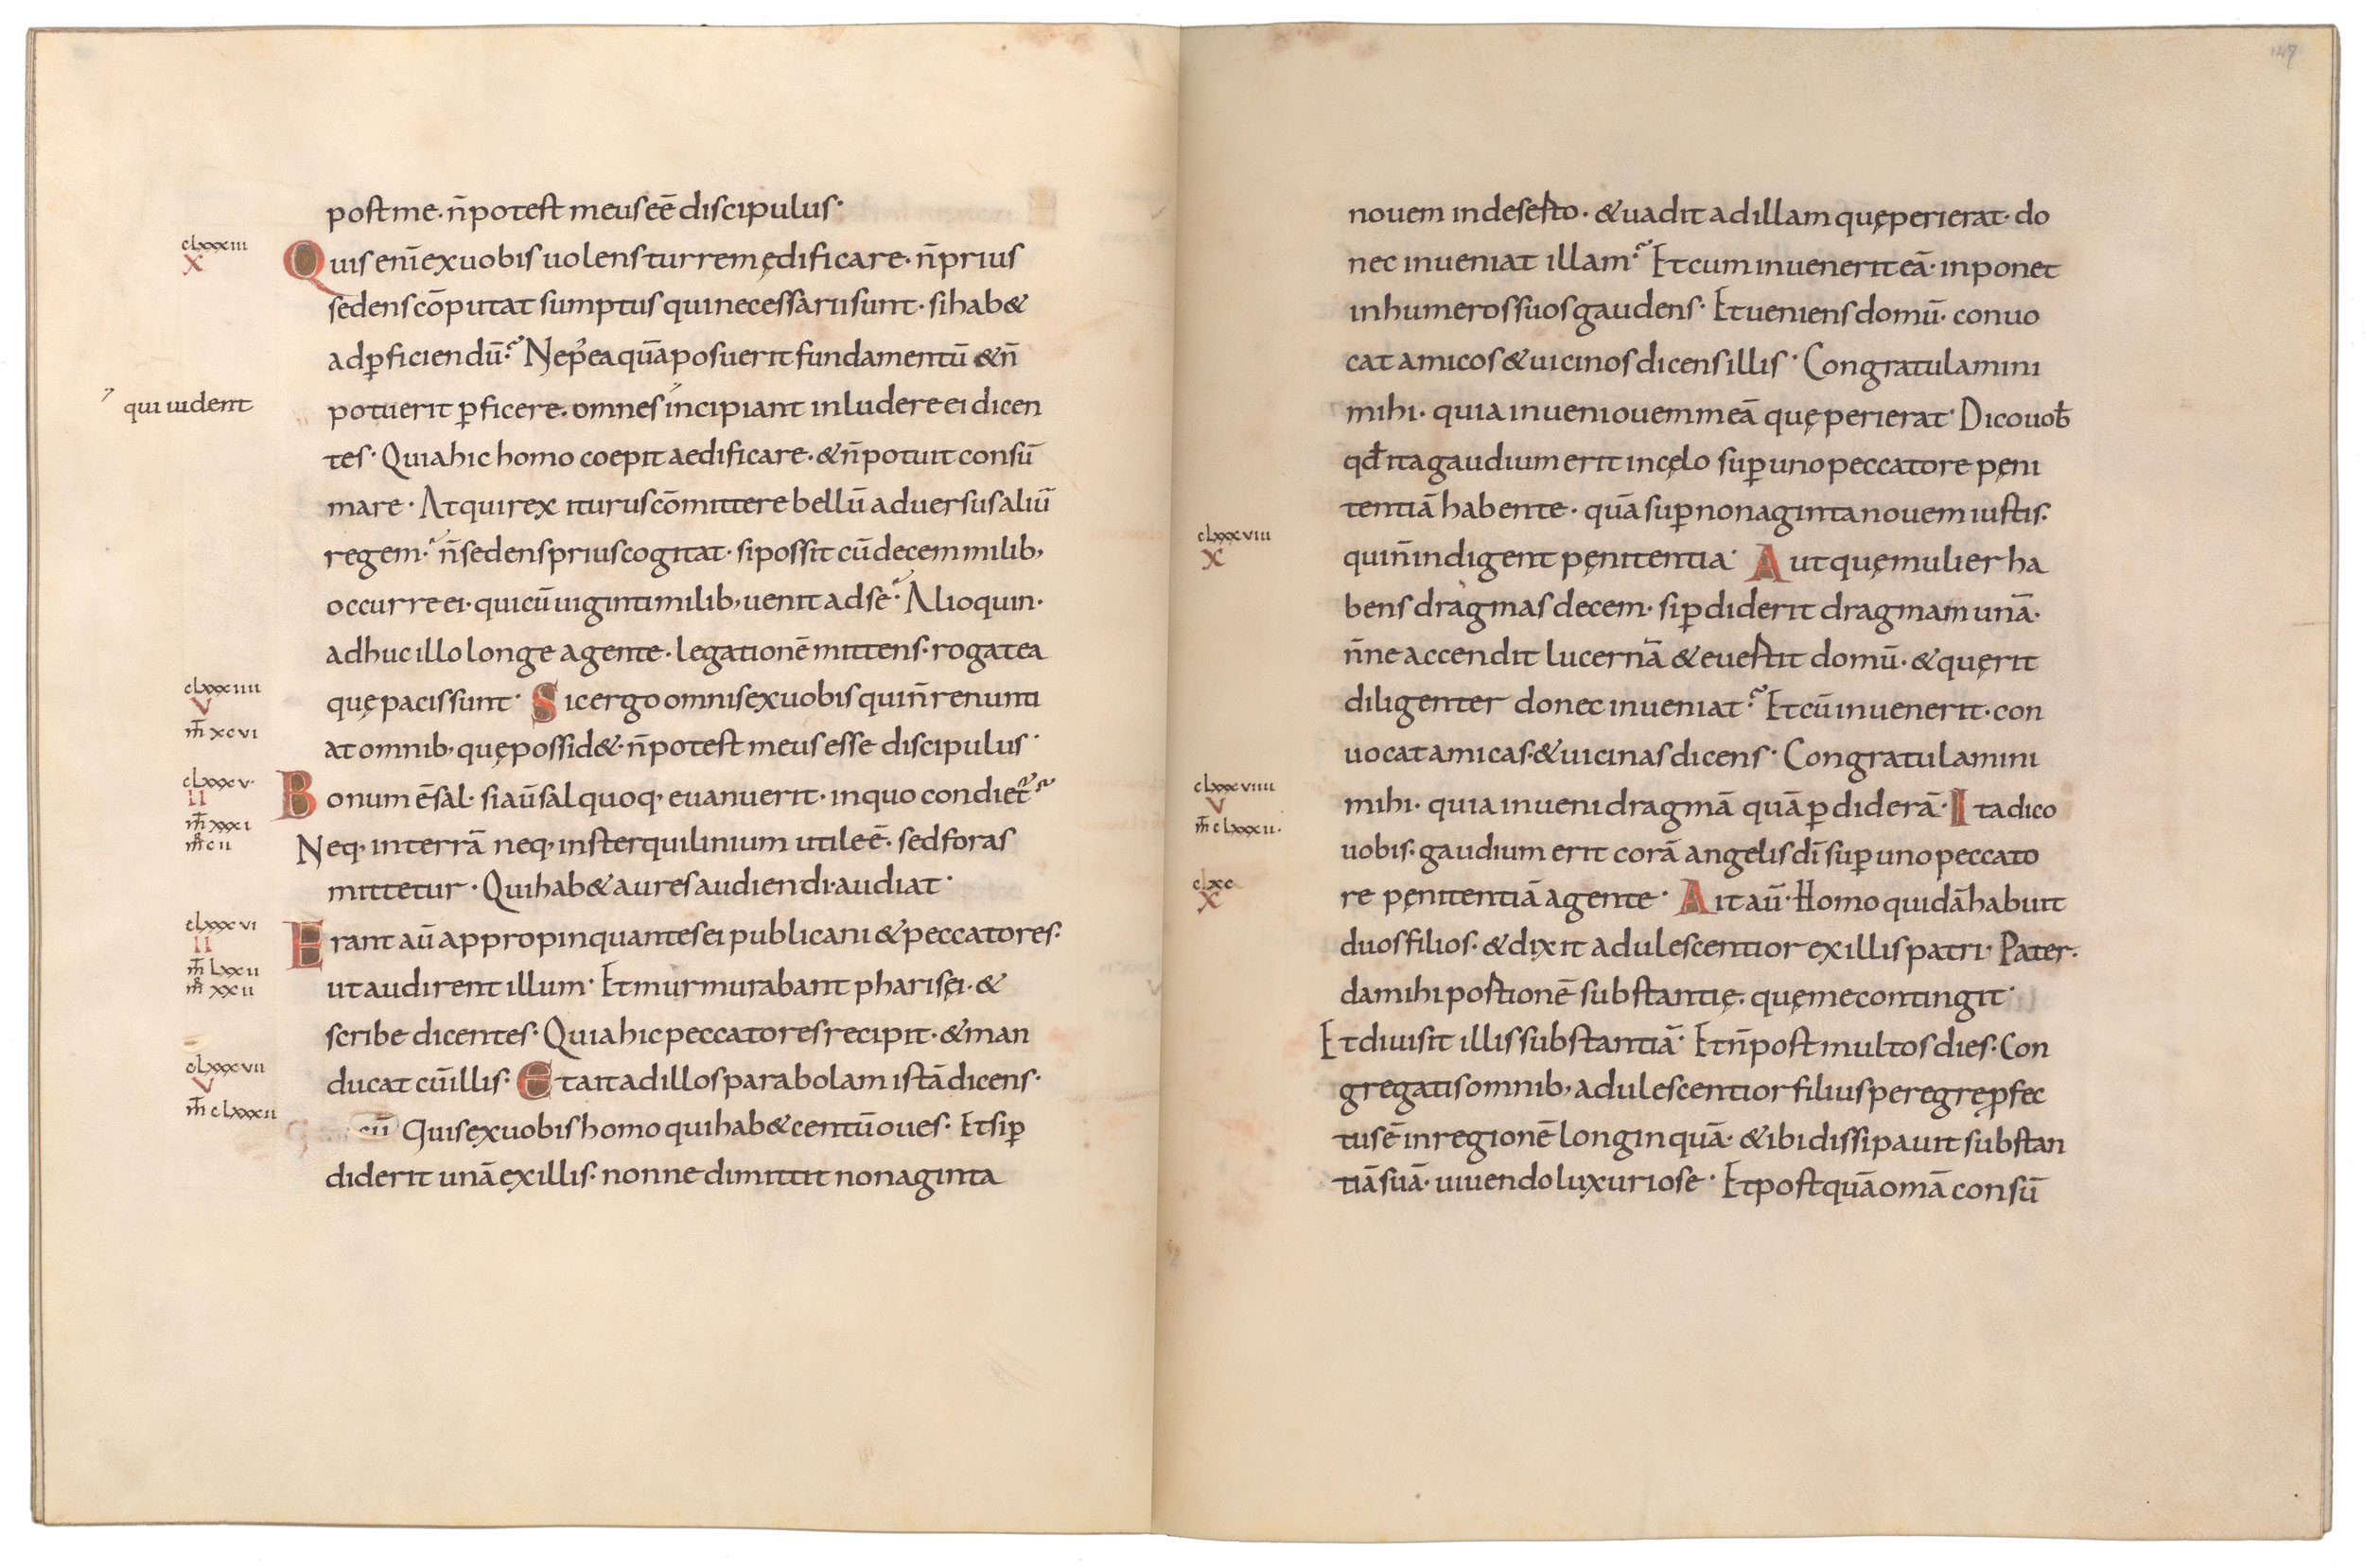 post me. n̄ potest meus eē discipulus·
clxxxiii
X
Quis eni̅ ex uobis uolens turrem ędificare· n̄ prius
sedens cōputat sumptus qui necessarii sunt· si hab&
ad ꝑficiendū· Ne p̄ea quā aposuerit fundamentū & n̄
qui uident
potuerit ꝑficere. omnes incipiant inludere ei dicen
tes· Quia hic homo coepit aedificare· & n̄ potuit consū
mare· At qui rex iturus cōmittere bellū aduersus aliū
regem· n̄ sedens prius cogitat· si possit cū decem milib;
occurre ei· qui cū uiginti milib; uenit ad se· Alioquin·
adhuc illo longe agente· legationē mittens· rogat ea
clxxxiiii
V
m̄ xcvi
quę pacis sunt· Sic ergo omnis ex uobis qui n̄ renunti
at omnib; quę possid& n̄ potest meus esse discipulus·
clxxxv·
II
m̄ xxxi
mr̄ cii
Bonum ē sal· si aū sal quoq; euanuerit· in quo condiet̄
Neq; in terrā neq; in sterquilinium utile ē· sed foras
mittetur· Qui hab& aures audiendi· audiat·
clxxxvi
II
m̄ lxxii
mr̄ xxii
Erant aū appropinquantes ei publicani & peccatores·
ut audirent illum· Et murmurabant pharisęi· &
scribe dicentes· Quia hic peccatores recipit· & man
clxxxvii
V
m̄ clxxxii
ducat cū illis· Et ait ad illos parabolam istā dicens·
Quis ex uobis homo qui hab& centū oues· Et si ꝑ
diderit unā ex illis· nonne dimittit nonaginta
147
nouem in deserto· & uadit ad illam quę perierat· do
nec inueniat illam· Et cum inuenerit eā· inponet
in humeros suos gaudens· Et ueniens domū· conuo
cat amicos & uicinos dicens illis· Congratulamini
mihi· quia inueni ouem meā quę perierat· Dico uob̄
qđ ita gaudium erit in cęlo suꝑ uno peccatore pęni
tentiā habente· quā suꝑ nonaginta nouem iustis·
clxxxviii
X
qui n̄ indigent pęnitentia· Aut quę mulier ha
bens dragmas decem· si ꝑdiderit dragmam unā·
n̄ne accendit lucernā & euertit domū· & quęrit
diligenter donec inueniat· Et cū inuenerit· con
uocat amicas· & uicinas dicens· Congratulamini
clxxxviiii
V
m̄ clxxxii·
mihi· quia inueni dragmā quā ꝑdiderā· Ita dico
uobis· gaudium erit corā angelis dī suꝑ uno peccato
clxc
X
re pęnitentiā agente· Ait aū· Homo quidā habuit
duos filios· & dixit adulescentior ex illis patri· Pater·
da mihi portionē substantię. quę me contingit·
Et diuisit illis substantiā· Et n̄ post multos dies· Con
gregatis omnib; adulescentior filius peregre ꝓfec
tus ē in regionē longinquā· & ibi dissipauit substan
tiā suā· uiuendo luxuriose· Et postquā omā consū